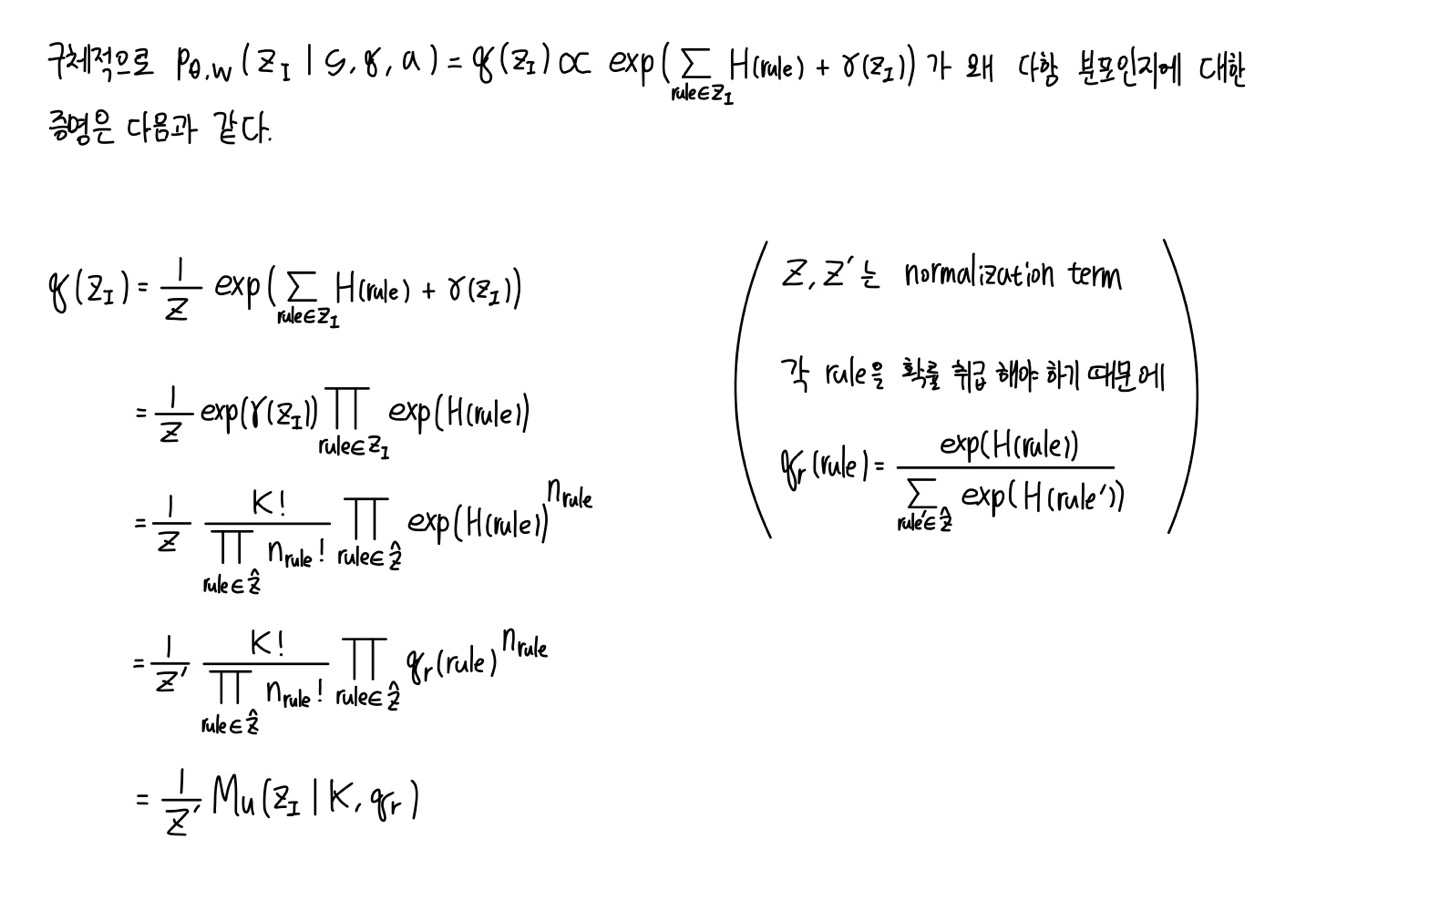 구체적으로 p_{θ,w}(z_I | G, q, a) = q(z_I) ∝ exp(∑_{rule∈z_I} H(rule) + γ(z_I)) 가 왜 다항 분포인지에 대한
증명은 다음과 같다.
q(z_I) = \frac{1}{Z} exp(∑_{rule∈z_I} H(rule) + γ(z_I))
= \frac{1}{Z} exp(γ(z_I)) ∏_{rule∈z_I} exp(H(rule))
= \frac{1}{Z} \frac{K!}{∏_{rule∈\hat{z}} n_{rule}!} ∏_{rule∈\hat{z}} exp(H(rule))^{n_{rule}}
= \frac{1}{Z'} \frac{K!}{∏_{rule∈\hat{z}} n_{rule}!} ∏_{rule∈\hat{z}} q_r(rule)^{n_{rule}}
= \frac{1}{Z'} Mu(z_I | K, q_r)
Z, Z'는 normalization term
각 rule을 확률 취급 해야 하기 때문에
q_r(rule) = \frac{exp(H(rule))}{∑_{rule'∈\hat{z}} exp(H(rule'))}